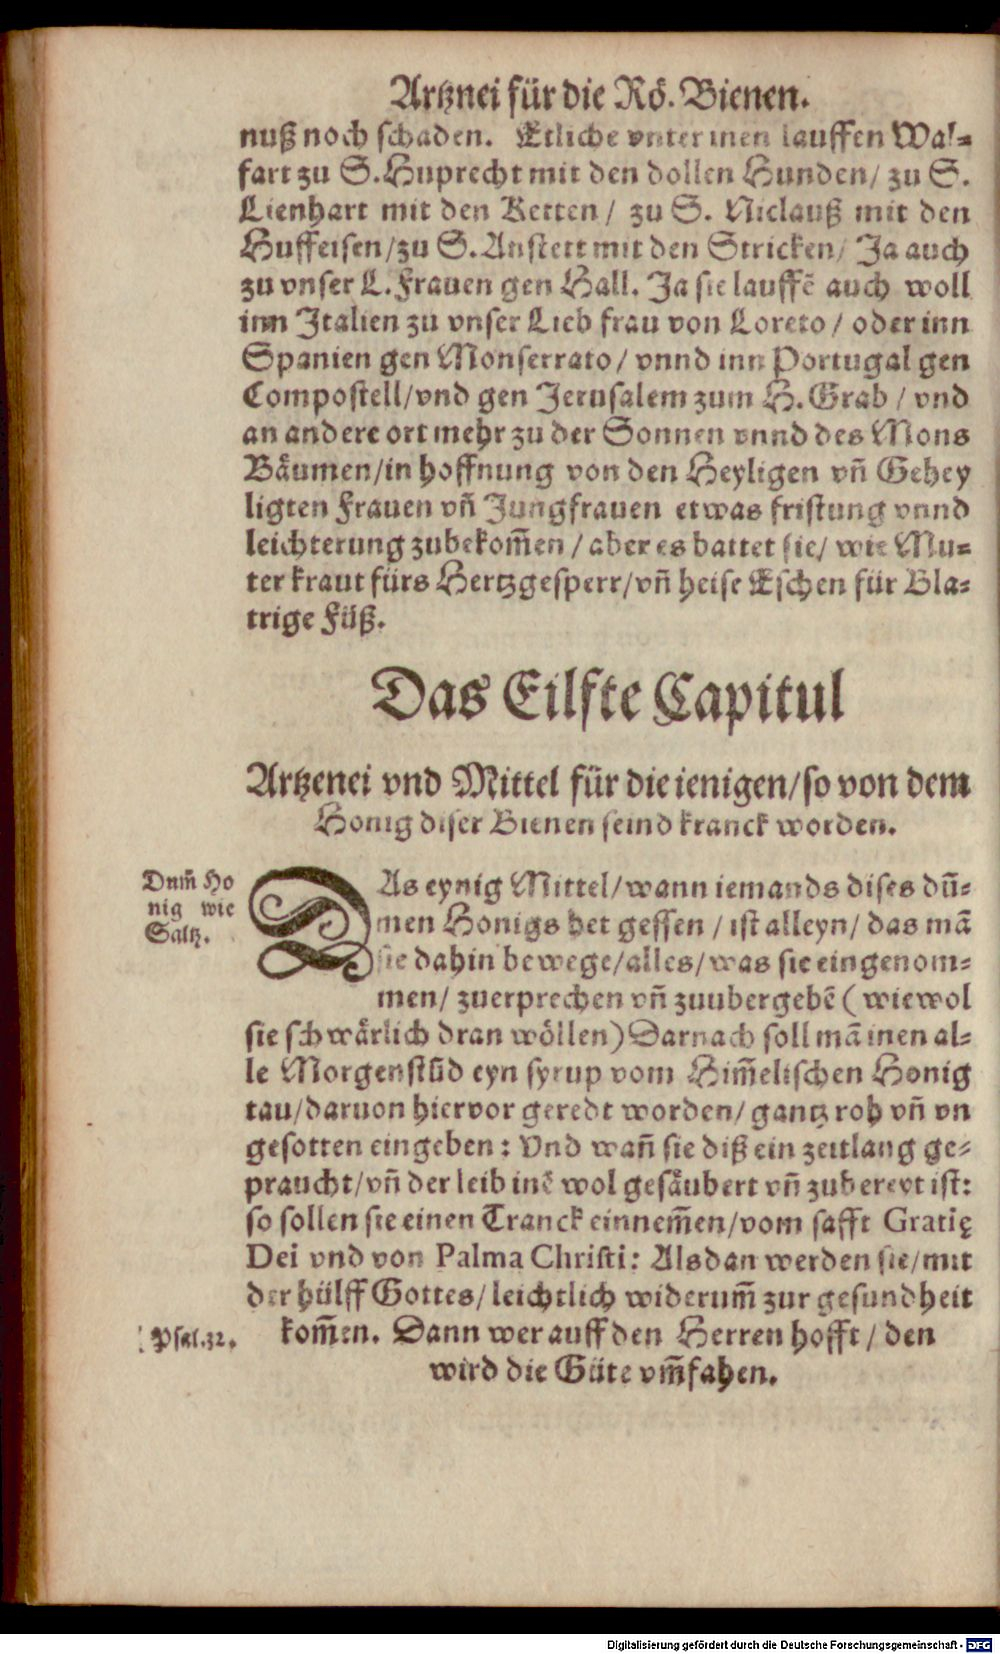 Artznei für die Rö. Bienen.
nuß noch schaden. Etliche vnter inen lauffen Wal-
fart zu S. Huprecht mit den dollen Hunden / zu S.
Lienhart mit den Ketten / zu S. Niclauß mit den
Huffeisen / zu S. Anstett mit den Stricken / Ja auch
zu vnser L. Frauen gen Hall. Ja sie lauffẽ auch woll
inn Italien zu vnser Lieb frau von Loreto / oder inn
Spanien gen Monserrato / vnnd inn Portugal gen
Compostell / vnd gen Jerusalem zum H. Grab / vnd
an andere ort mehr zu der Sonnen vnnd des Mons
Bäumen / in hoffnung von den Heyligen vñ Gehey
ligten Frauen vñ Jungfrauen etwas fristung vnnd
leichterung zubekom̃en / aber es battet sie / wie Mu-
ter kraut fürs Hertzgesperr / vñ heise Eschen für Bla-
trige Füß.
Das Eilfte Capitul
Artzenei vnd Mittel für die ienigen / so von dem
Honig diser Bienen seind kranck worden.
Dum̃ Ho
nig wie
Saltz.
DAs eynig Mittel / wann iemands dises dũ-
men Honigs het gessen / ist alleyn / das mã
sie dahin bewege / alles / was sie eingenom-
men / zuerprechen vñ zuubergebẽ (wiewol
sie schwärlich dran wöllen) Darnach soll mã inen al-
le Morgenstũd eyn syrup vom Him̃elischen Honig
tau / daruon hiervor geredt worden / gantz roh vñ vn
gesotten eingeben: Vnd wañ sie diß ein zeitlang ge-
praucht / vñ der leib inẽ wol gesäubert vñ zubereyt ist:
so sollen sie einen Tranck einnem̃en / vom safft Gratię
Dei vnd von Palma Christi: Alsdan werden sie / mit
der hülff Gottes / leichtlich widerum̃ zur gesundheit
Psal. 32.
kom̃en. Dann wer auff den Herren hofft / den
wird die Güte vm̃fahen.
Digitalisierung gefördert durch die Deutsche Forschungsgemeinschaft - DFG